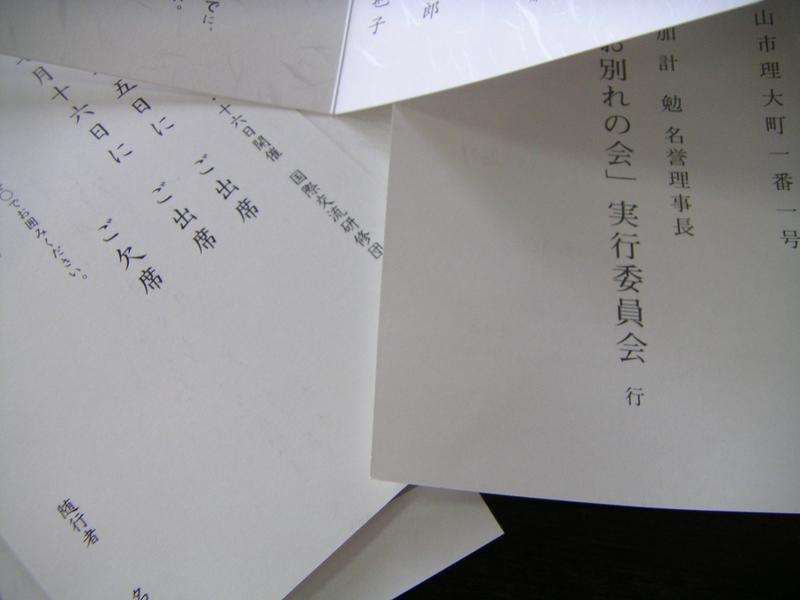 山市理大町一番一号
加計 勉 名誉理事長
お別れの会」実行委員会 行
郎
子
でに、
十六日開催 国際交流研修団
ご出席
五日に ご出席
月十六日に ご欠席
○でお囲みください。
随行者 名